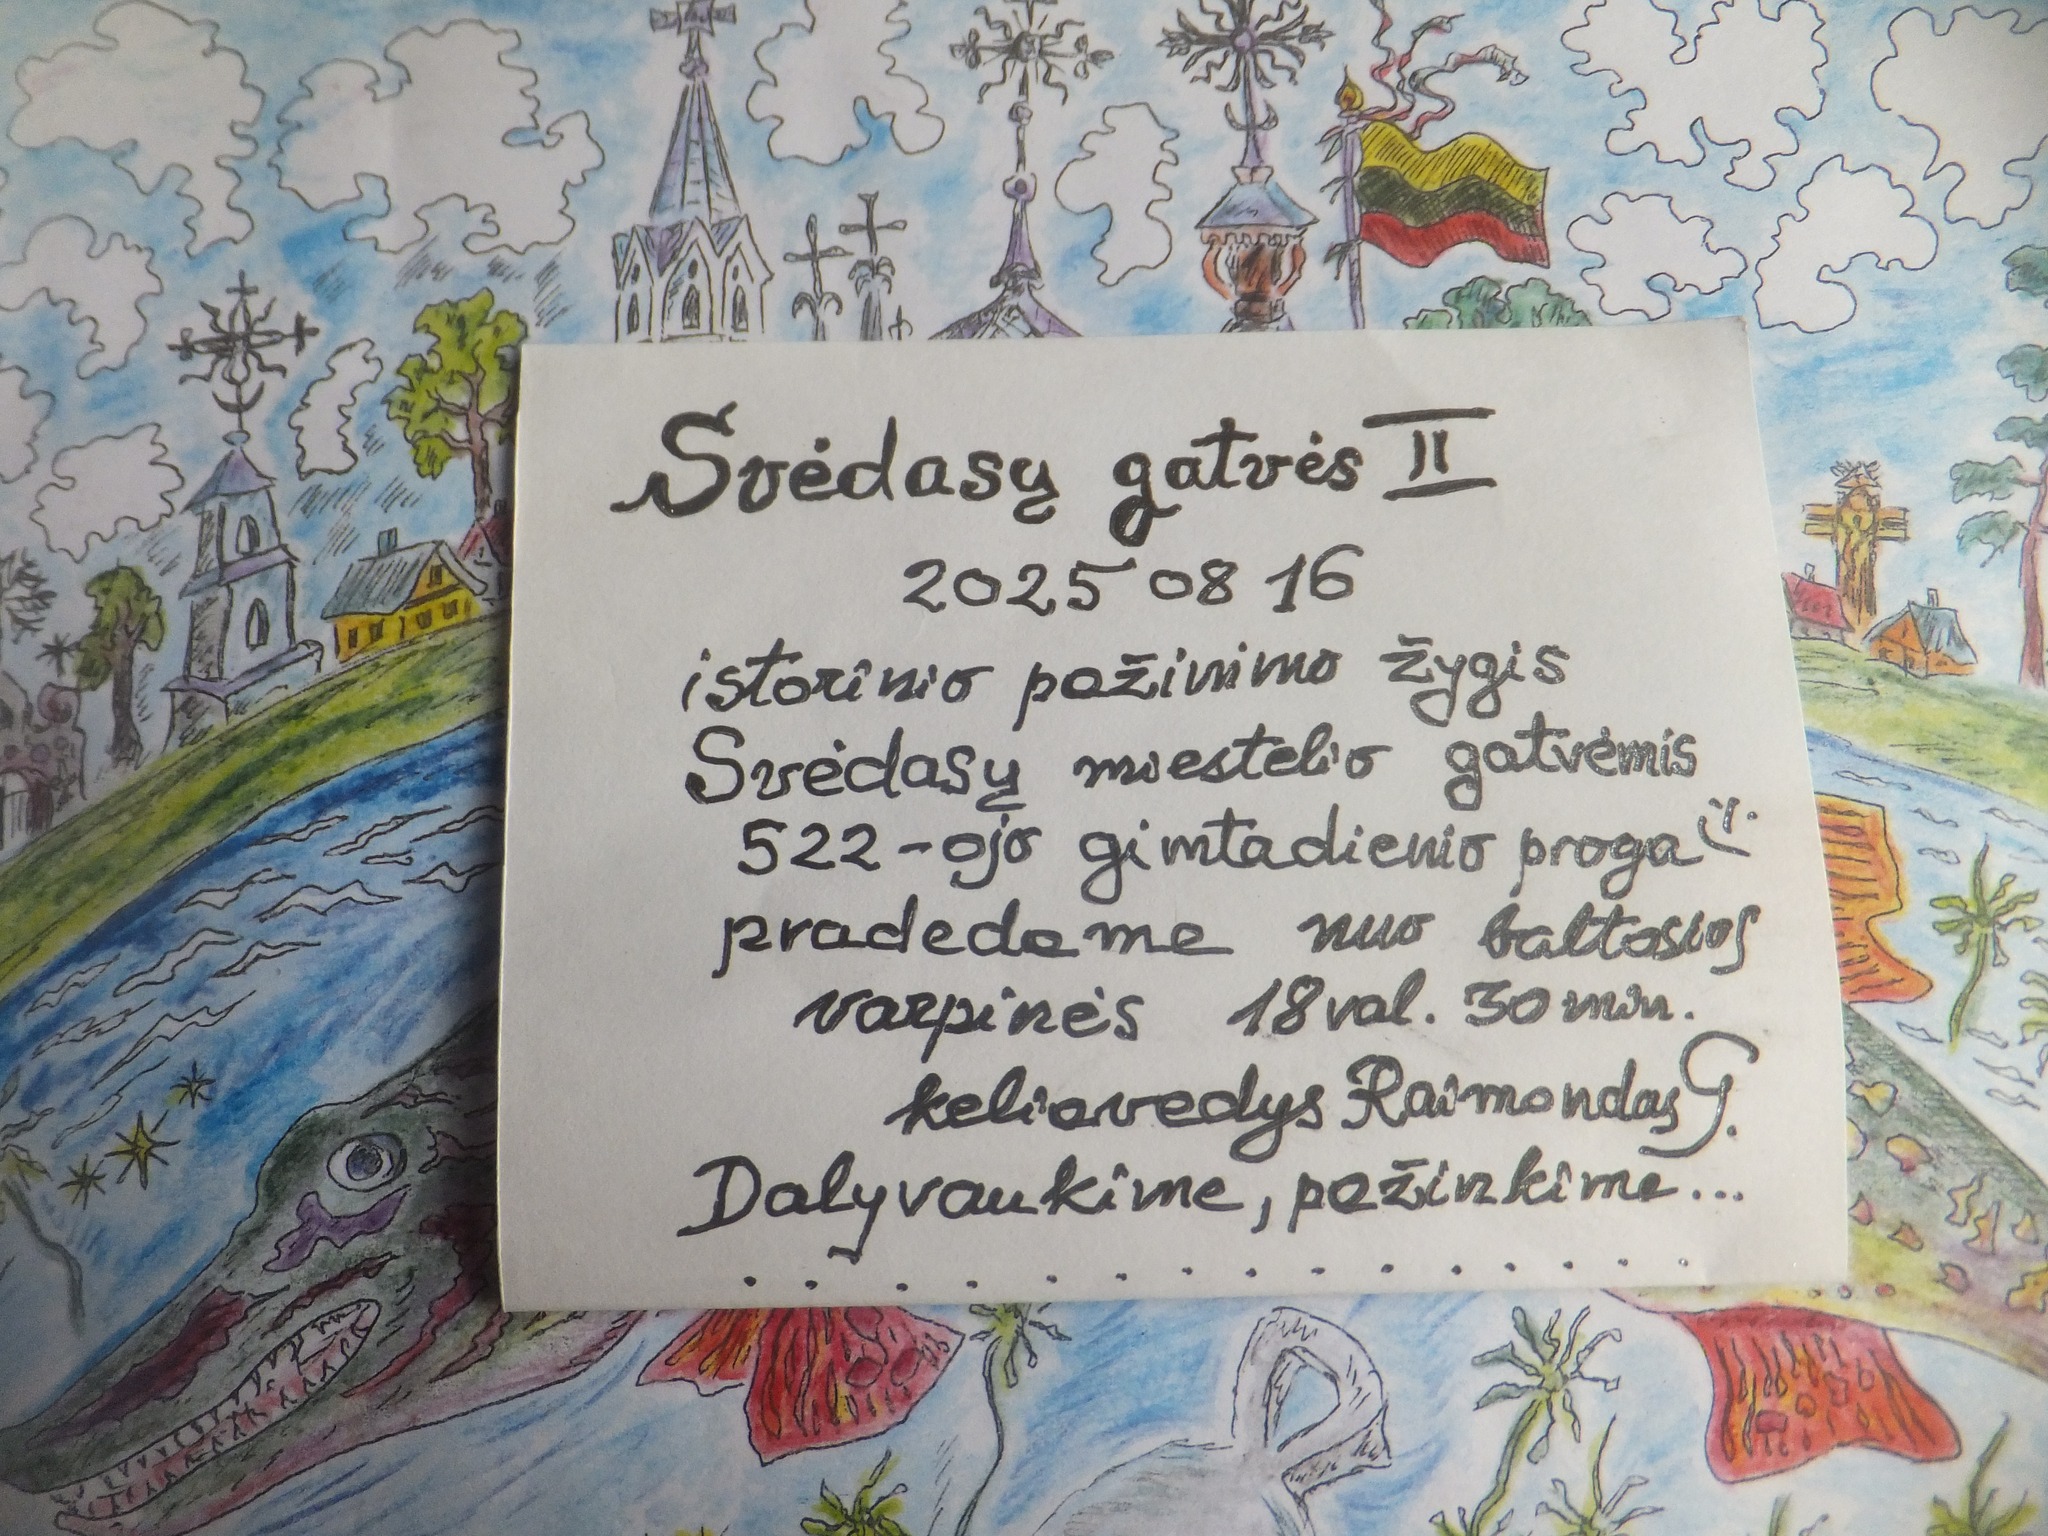 Svėdasų gatvės II
2025 08 16
istorinio pažinimo žygis
Svėdasų miestelio gatvėmis
522-ojo gimtadienio proga
pradedame nuo baltosios
varpinės 18 val. 30 min.
keliavedys Raimondas G.
Dalyvaukime, pažinkime...